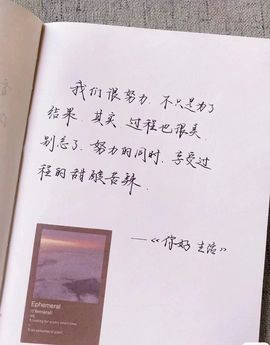 我们很努力.不只是为了
结果.其实.过程也很美.
别忘了.努力的同时.享受过
程的甜酸苦辣.
——《你好生活》
Ephemeral